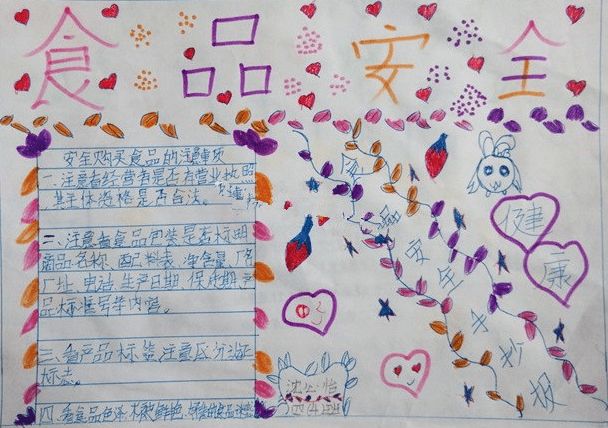 食品安全
安全购买食品的注意事项
一、注意看经营者是否有营业执照
其主体资格是否合法。
二、注意看食品包装是否标明
商品名称、配料表、净含量、厂名
厂址、电话、生产日期、保质期、产
品标准号等内容。
三、看产品标签,注意区分认证
标志。
四、看食品色泽
食品安全手抄报
健康
四(4)班